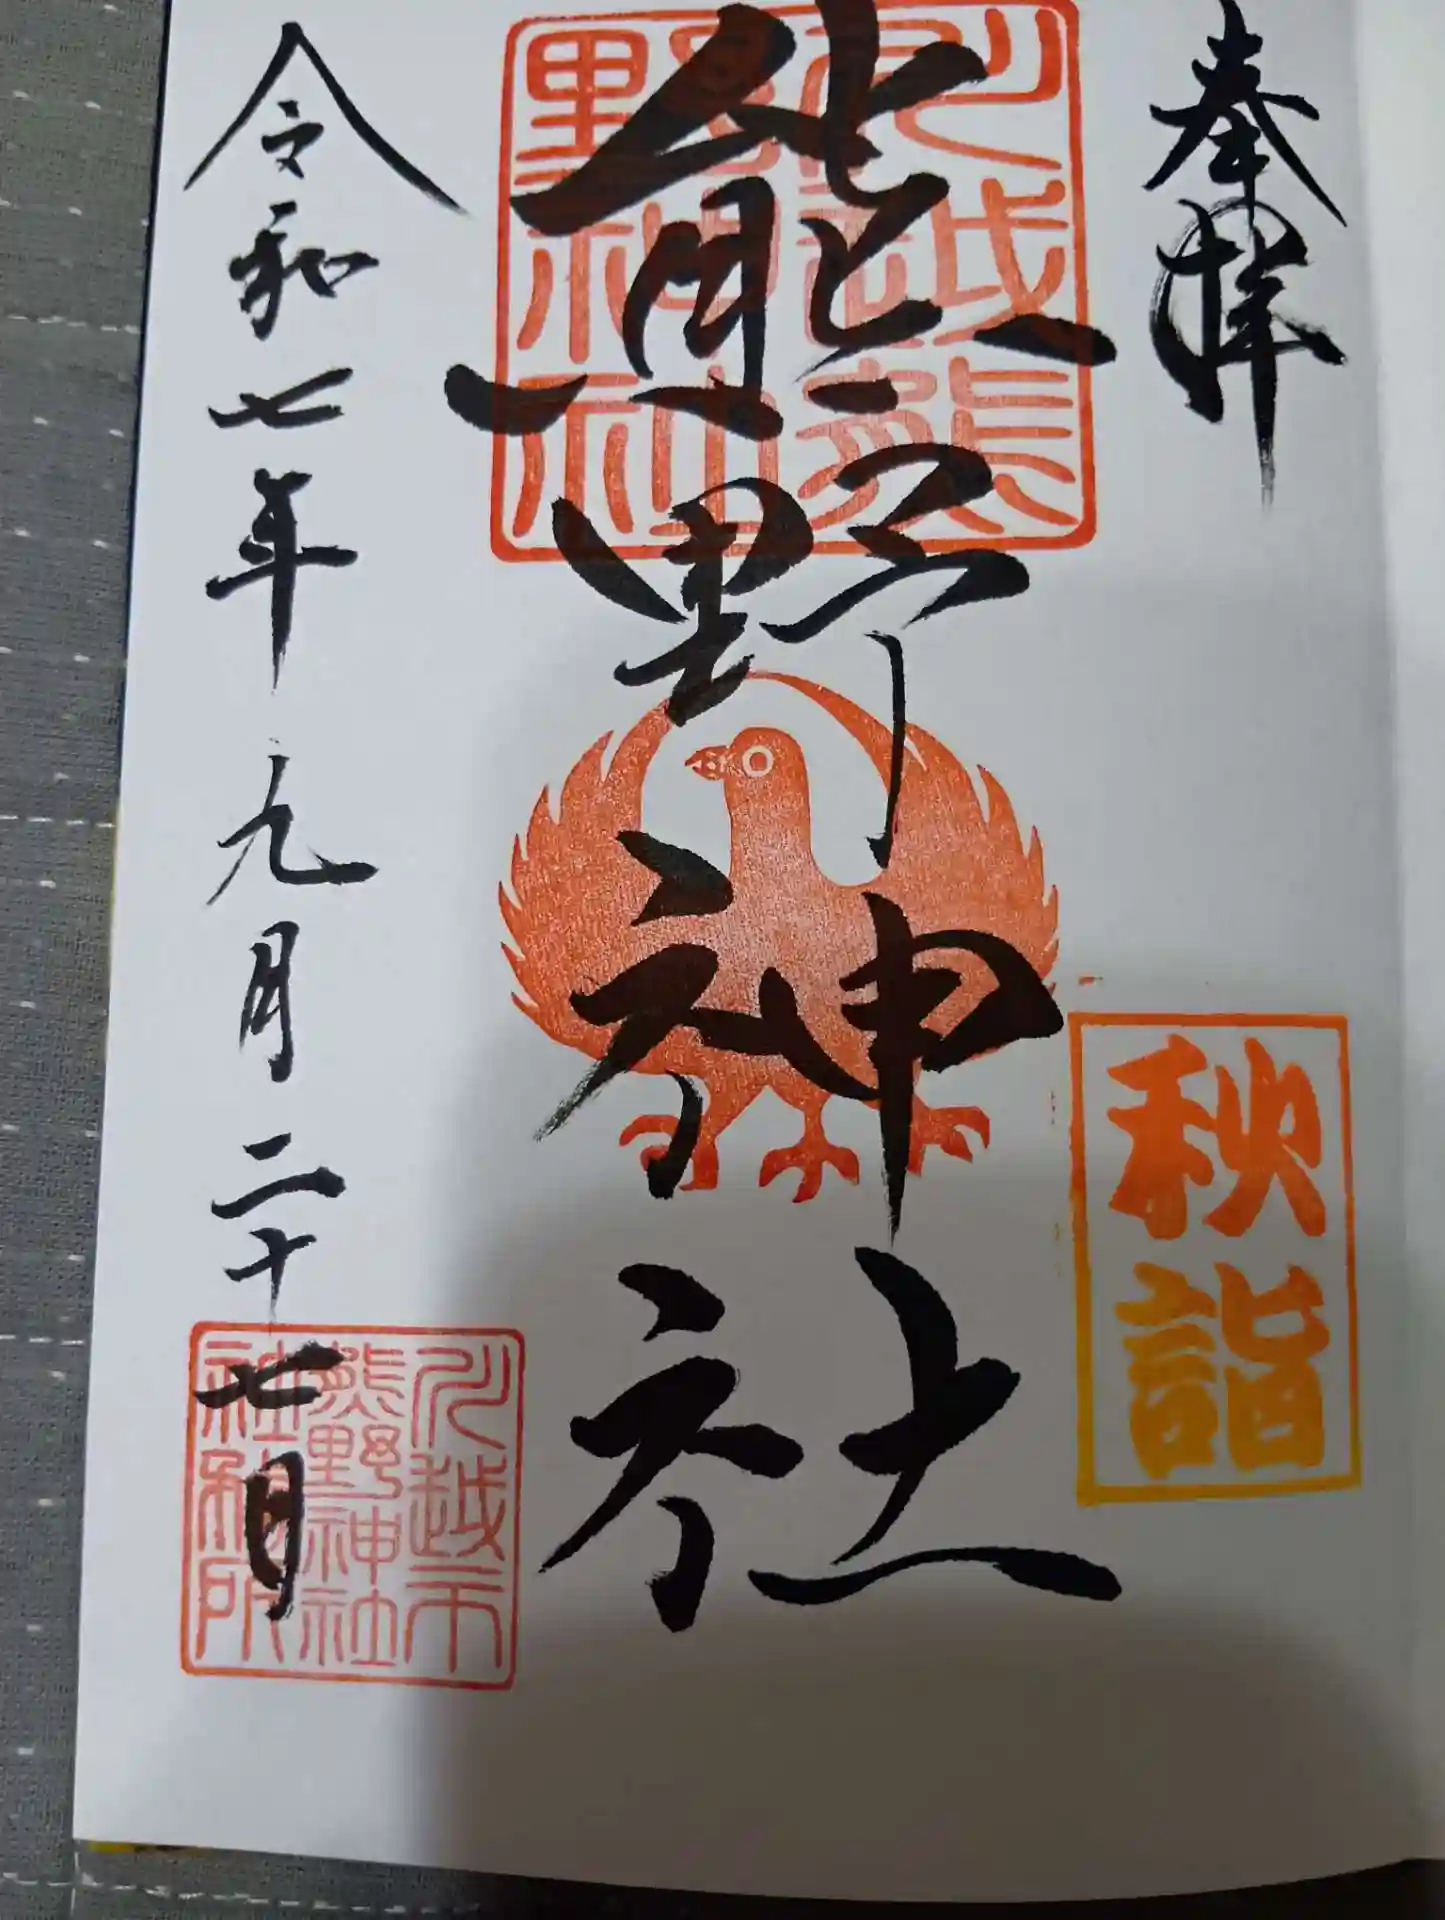 奉拝
秋詣
熊野神社
川越熊
野神社
令和七年九月二十七日
川越市
熊野神社
社務所